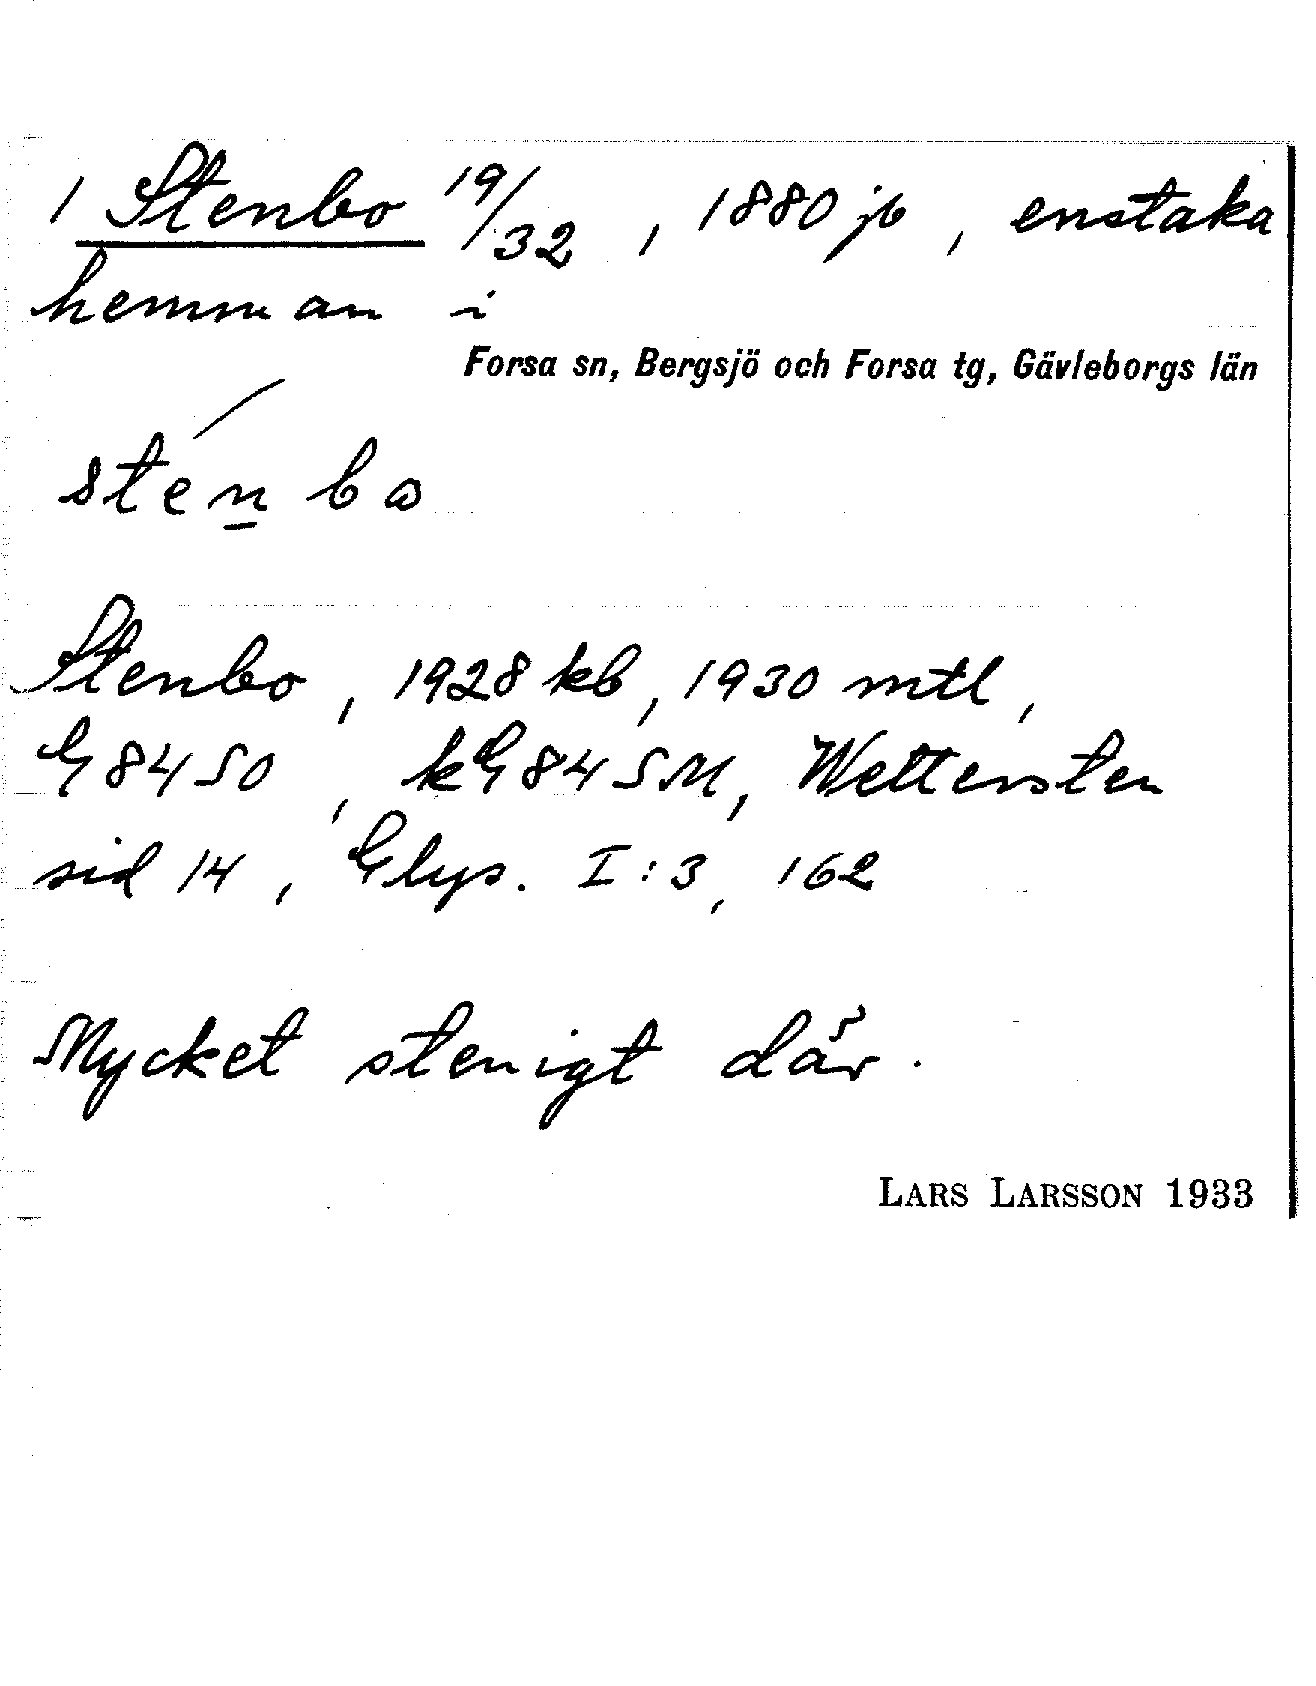 1 Stenbo 19/32, 1880 jb, enstaka
hemman i
Forsa sn, Bergsjö och Forsa tg, Gävleborgs län
sténbo
Stenbo, 1928 kb, 1930 mtl,
G 84 SO, kG 84 SM, Wettersten
sid 14, Glys. I:3, 162
Mycket stenigt där.
LARS LARSSON 1933